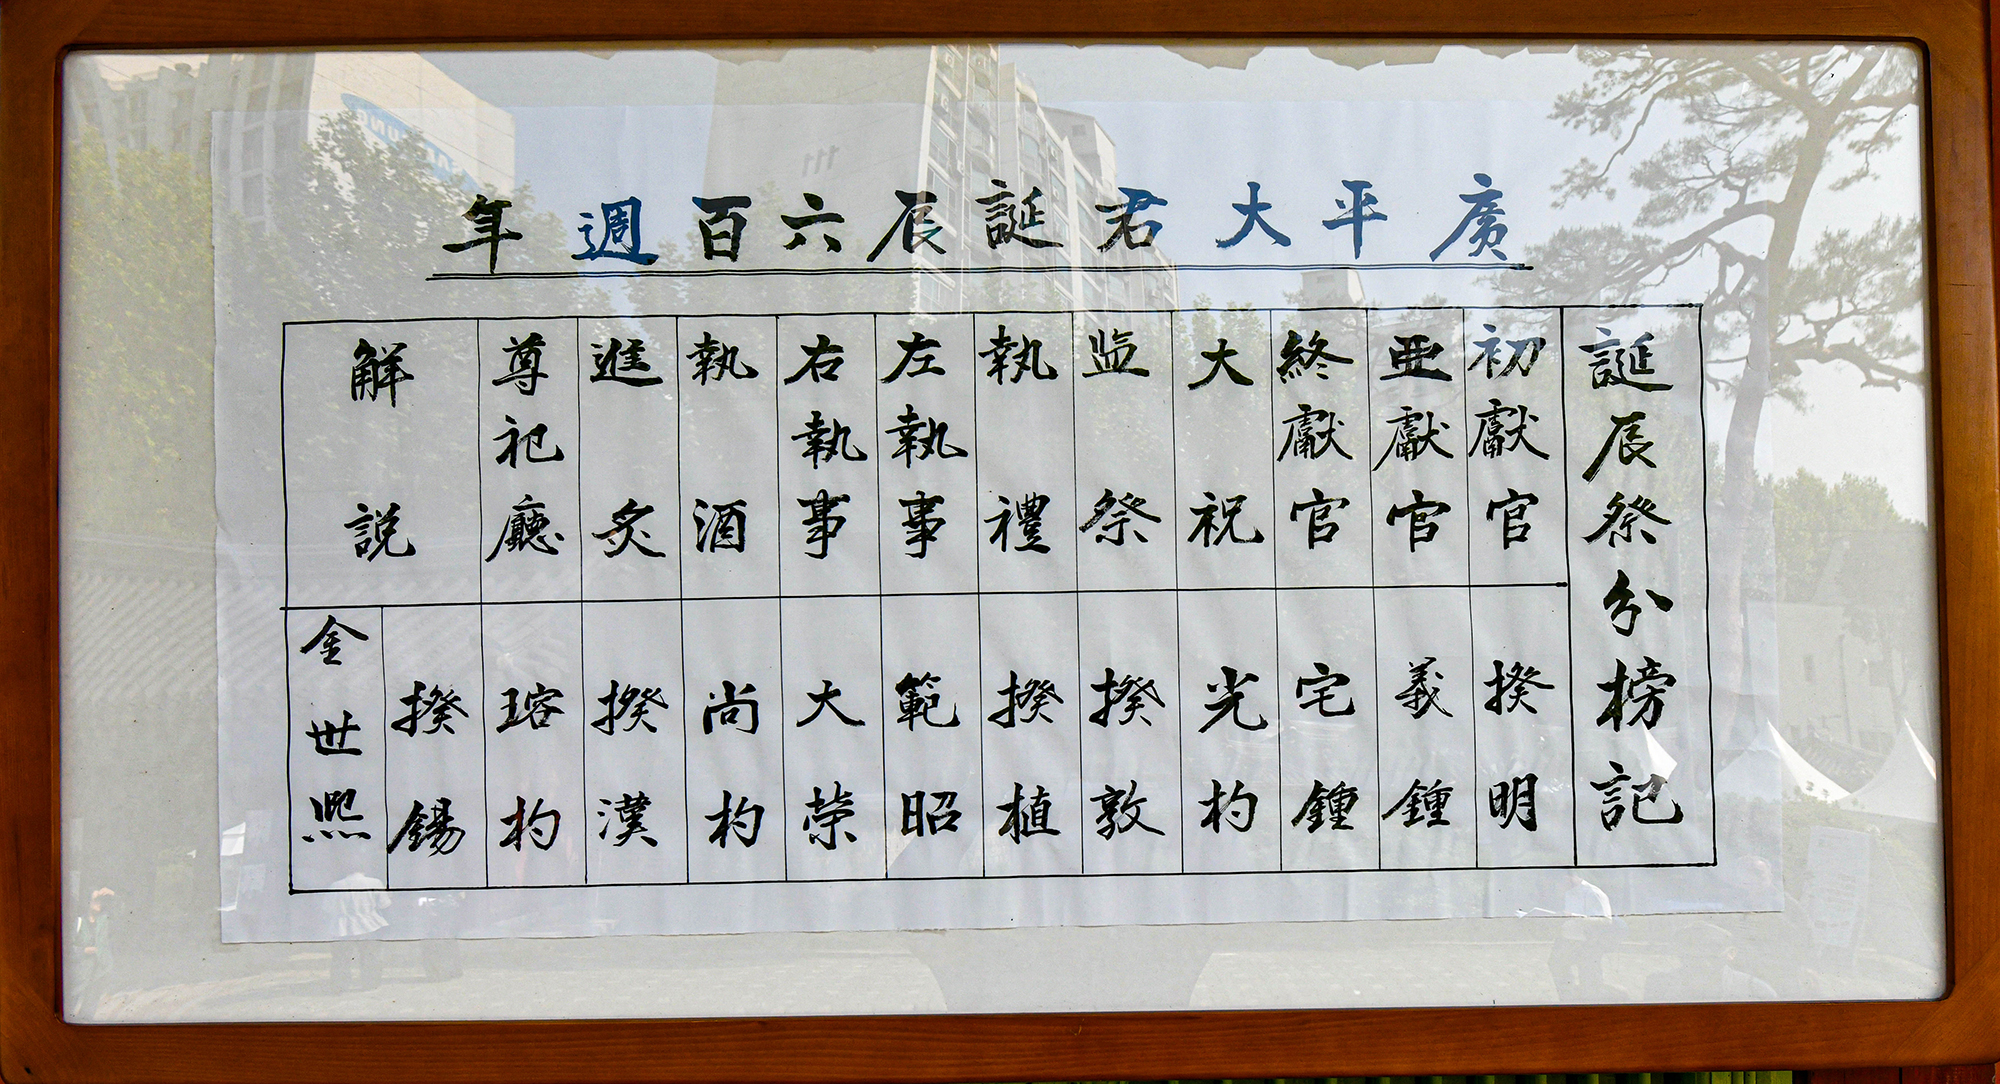 廣平大君誕辰六百週年
誕辰祭分榜記
初獻官 揆明
亞獻官 義鍾
終獻官 宅鍾
大祝 光杓
监祭 揆敦
執禮 揆植
左執事 範昭
右執事 大榮
執酒 尚杓
進炙 揆漢
尊祀廳 瑢杓
解説 揆錫 金世熙
111